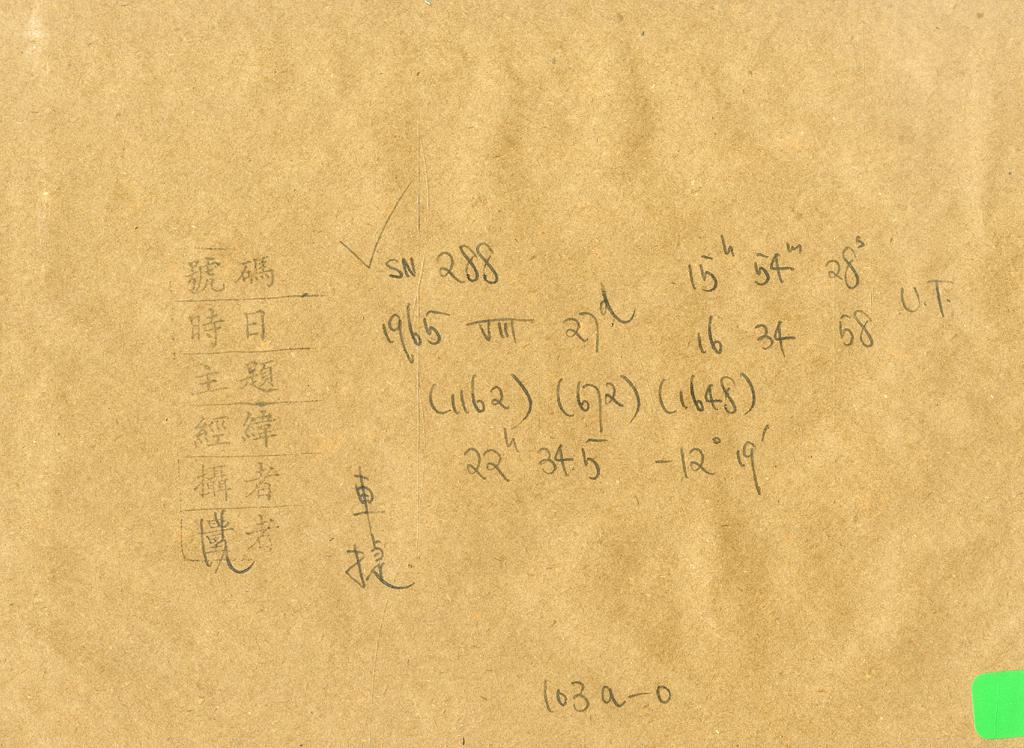 號碼 SN 288 15h 54m 28s
時日 1965 VIII 27d 16 34 58 U.T.
主題 (1162) (672) (1648)
經緯 22h 34.5 -12° 19′
攝者 車
者
103a-0